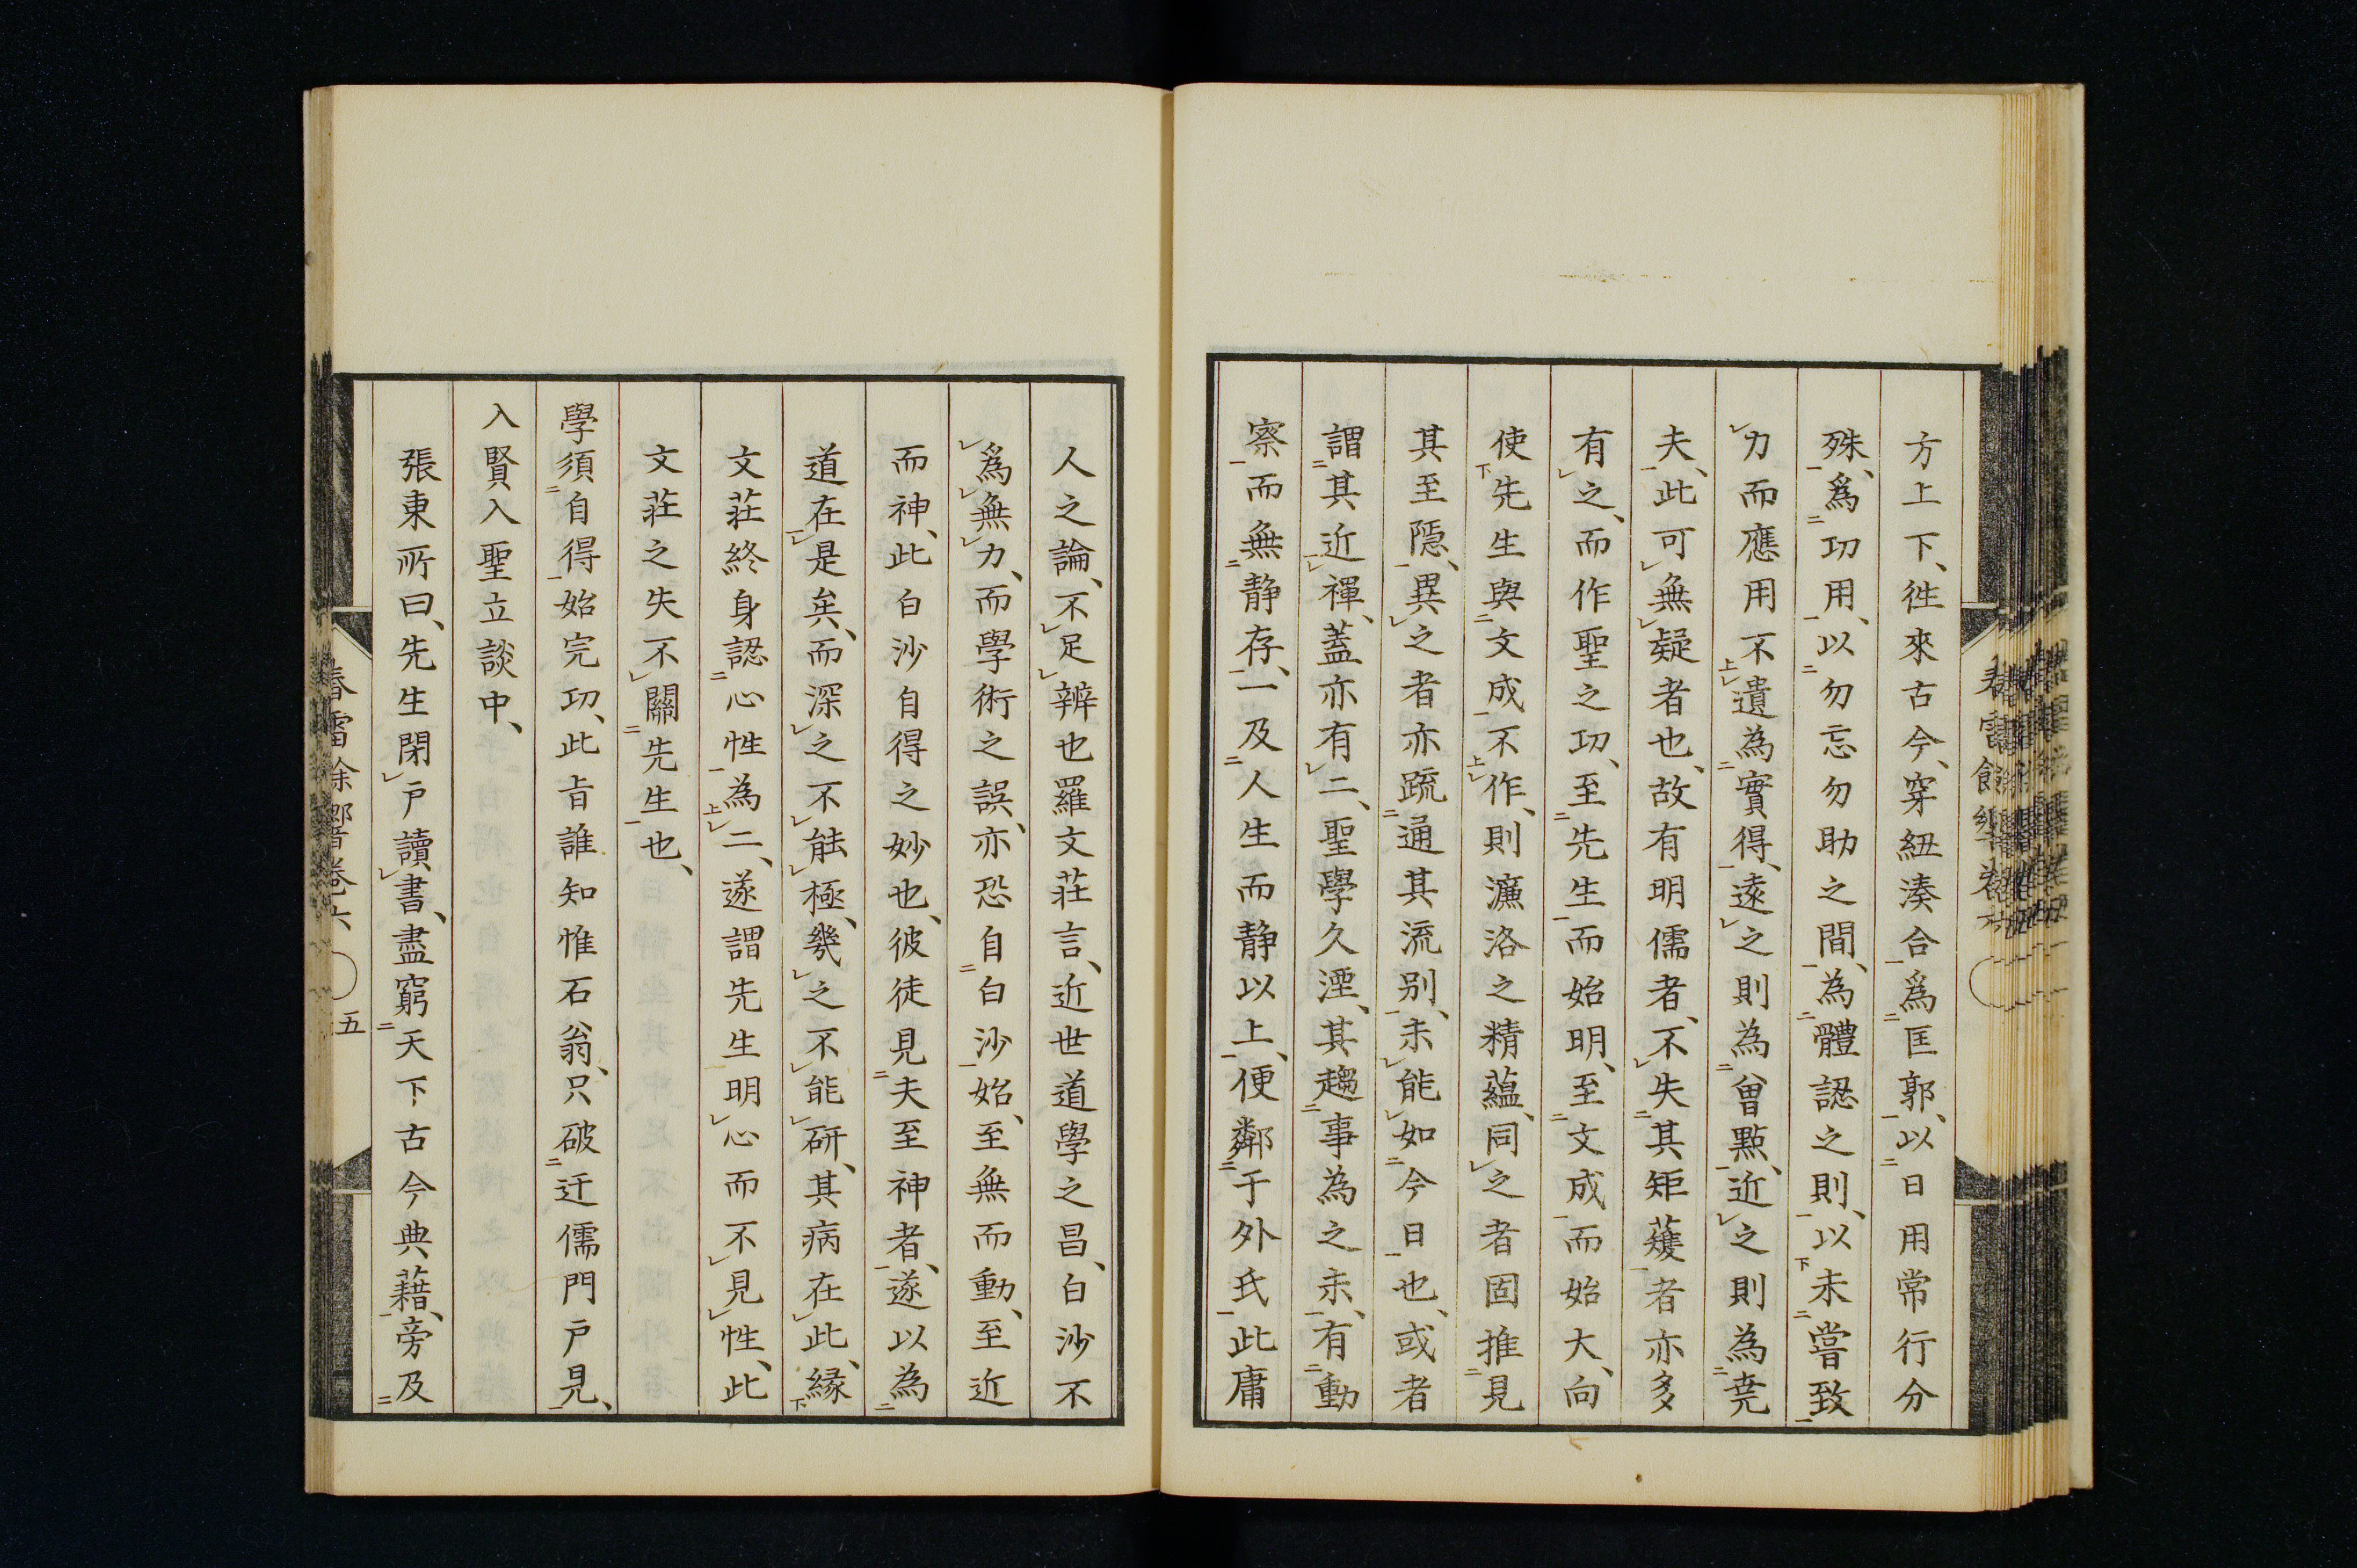 方上下、徃來古今、穿紐湊合爲匡郭、以日用常行分
殊、爲功用、以勿忘勿助之間、為體認之則、以未嘗致
力而應用不遺為實得、遠之則為曾點、近之則為堯
夫、此可無疑者也、故有明儒者、不失其矩矱者亦多
有之、而作聖之功、至先生而始明、至文成而始大、向
使先生與文成不作、則濂洛之精蘊、同之者固推見
其至隱、異之者亦疏通其流別、未能如今日也、或者
謂其近禪、蓋亦有二、聖學久湮、其趨事為之末、有動
察而無静存、一及人生而静以上、便鄰于外氏此庸
人之論、不足辨也羅文莊言、近世道學之昌、白沙不
爲無力、而學術之誤、亦恐自白沙始、至無而動、至近
而神、此白沙自得之妙也、彼徒見夫至神者、遂以為
道在是矣、而深之不能極、幾之不能研、其病在此、縁
文莊終身認心性為二、遂謂先生明心而不見性、此
文莊之失不關先生也、
學須自得始完功、此旨誰知惟石翁、只破迂儒門戸見、
入賢入聖立談中、
張東所曰、先生閉戸讀書、盡窮天下古今典藉、旁及
春雷餘響卷六
五